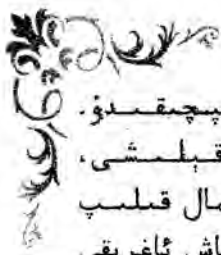 پىچىقىدۇ.
قىلىشى،
ال قىلىپ
اش ئاغرىقى